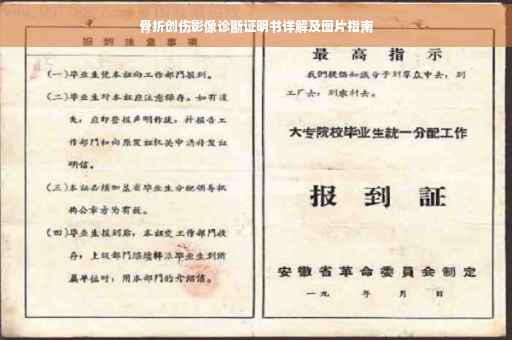 骨折创伤影像诊断证明书详解及图片指南
报到注意事项
(一)毕业生凭本证向工作部門报到。
(二)毕业生对本証应注意保存。如有遺
失,应即登报声明作废,并报告工
作部門和向原发証机关申請补发证
明信。
(三)本証必须加盖省毕业生分配领导机
构公章方为有效。
(四)毕业生报到后,本証交工作部門收
存;上级部門
毕业生到所
属单位时,用本部門的介紹信。
最高指示
我們提倡知識分子到羣众中去,到
工厂去,到农村去。
大专院校毕业生統一分配工作
报到証
安徽省革命委員会制定
一九 年 月 日